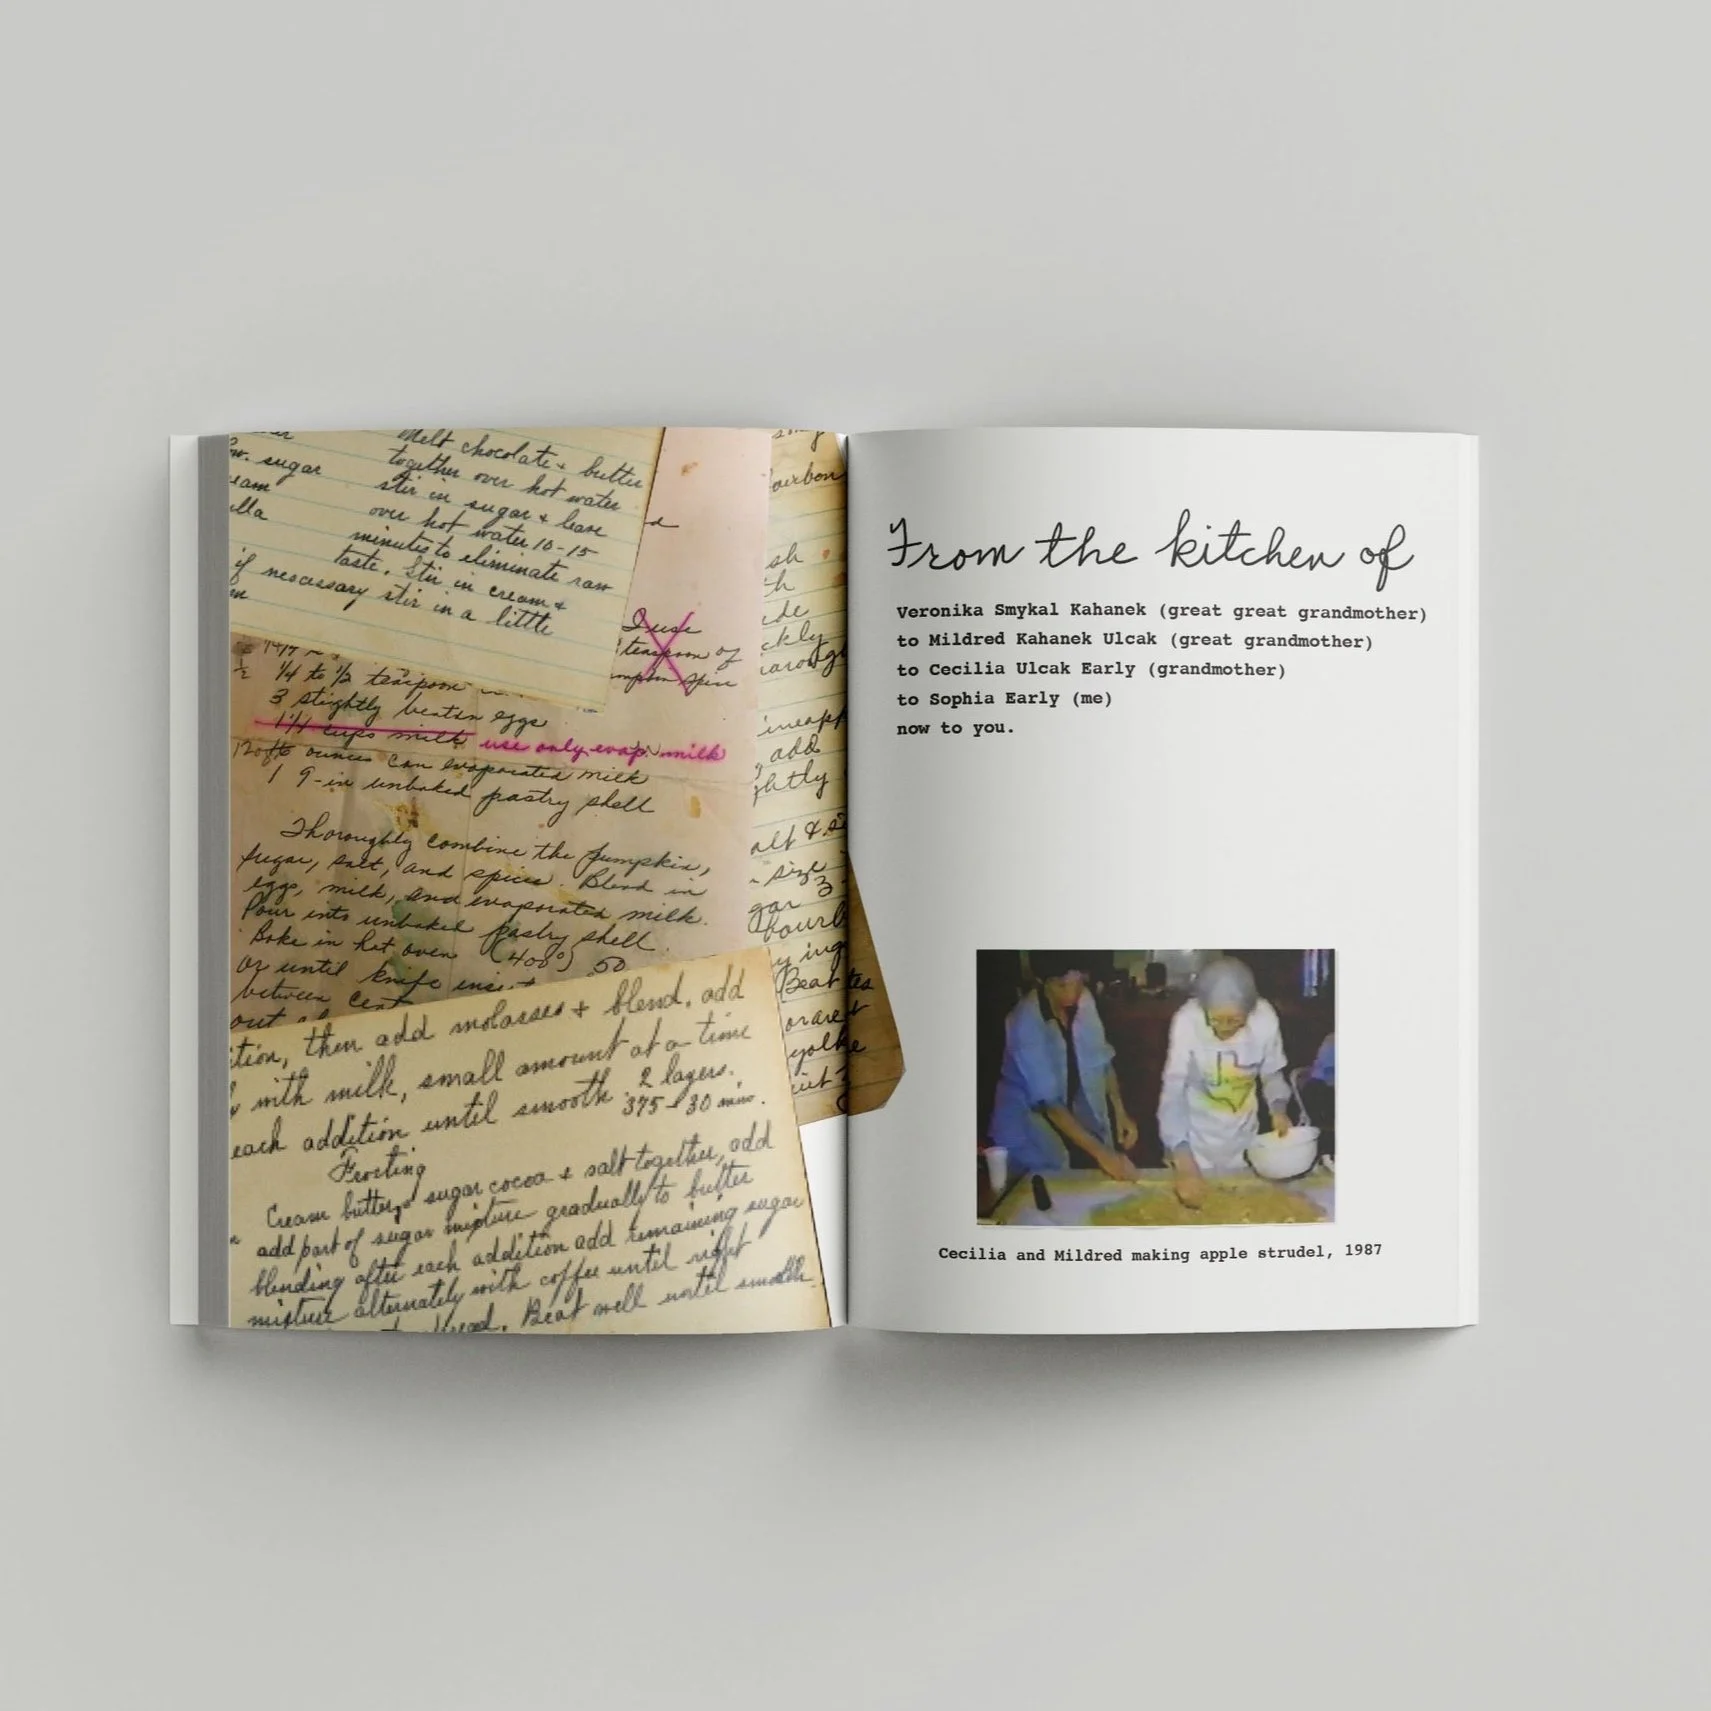 Melt chocolate + butter
sugar together over hot water
stir in sugar + leave
over hot water 10-15
minutes to eliminate raw
taste. Stir in cream +
if nescessary stir in a little
I use
teaspoon of
1/4 to 1/2 teaspoon
3 slightly beaten eggs
1 1/4 cups milk use only evap. milk
ounces can evaporated milk
1 9-in unbaked pastry shell
Thoroughly combine the pumpkin,
sugar, salt, and spices. Blend in
eggs, milk, and evaporated milk.
Pour into unbaked pastry shell.
Bake in hot oven (400°) 50
or until knife
between
out
then add molasses + blend. add
with milk, small amount at a time
each addition until smooth. 2 layers.
375 - 30 min.
Frosting
Cream butter, sugar cocoa + salt together, add
add part of sugar mixture gradually to butter
blending after each addition add remaining sugar
mixture alternately with coffee until right
Beat well until smooth
add
salt &
size
Beat
From the kitchen of
Veronika Smykal Kahanek (great great grandmother)
to Mildred Kahanek Ulcak (great grandmother)
to Cecilia Ulcak Early (grandmother)
to Sophia Early (me)
now to you.
Cecilia and Mildred making apple strudel, 1987